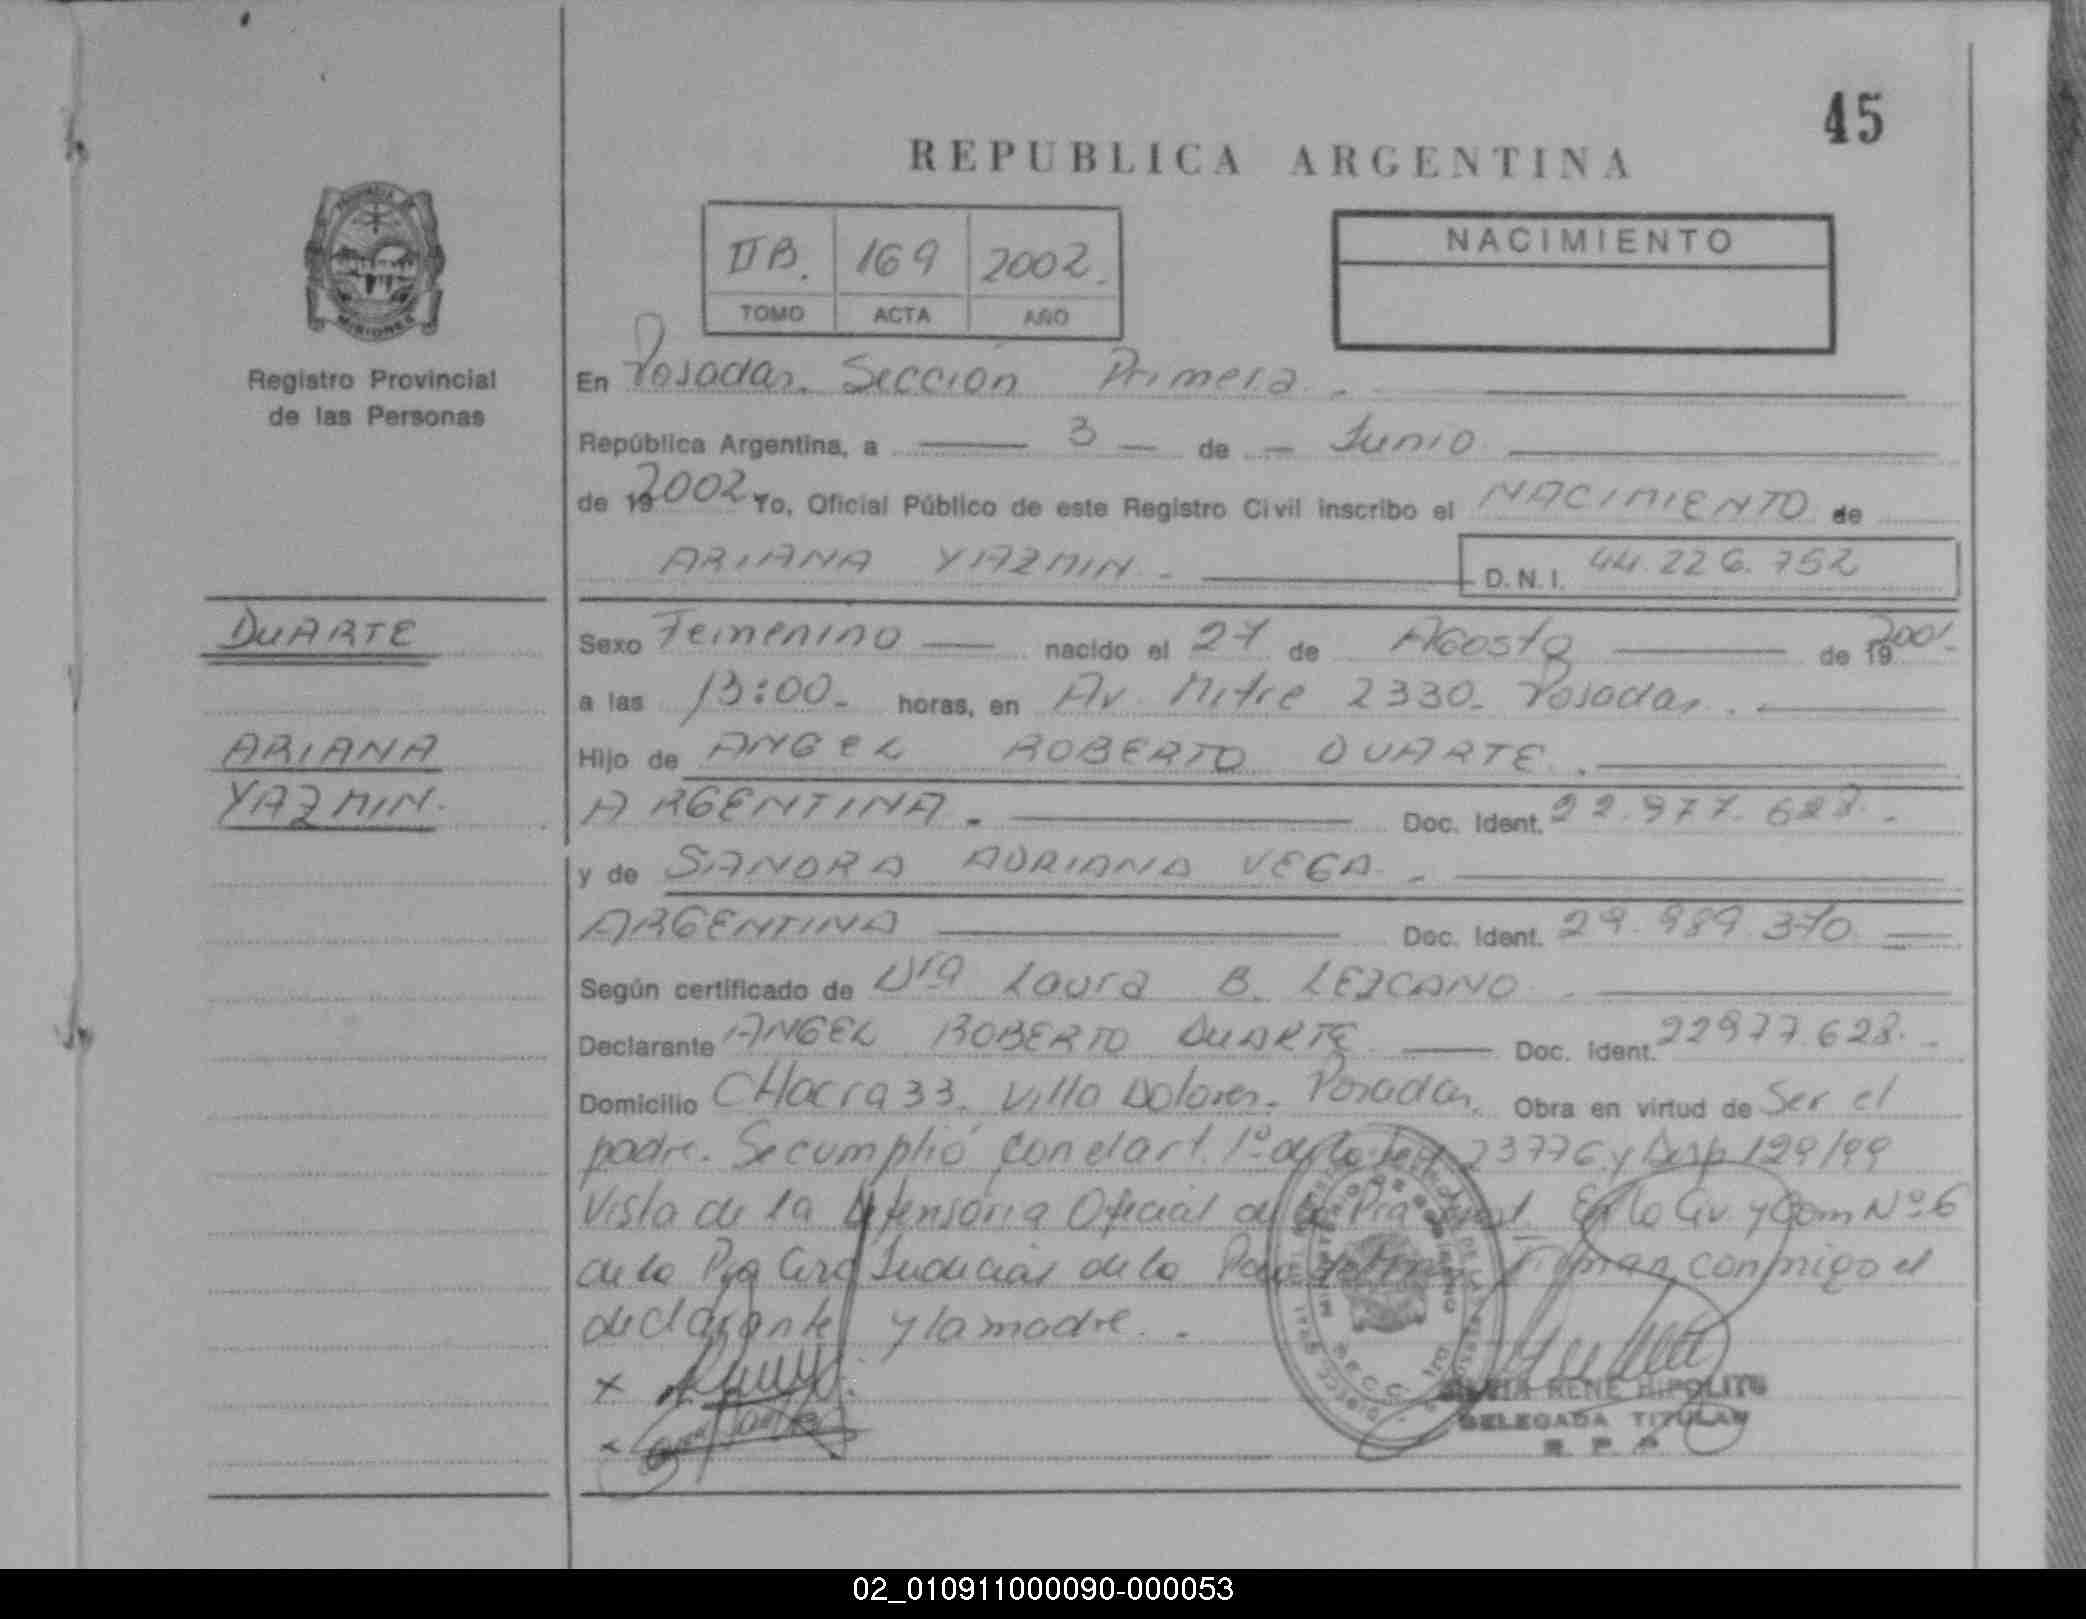 45
REPUBLICA ARGENTINA
IIB. 169 2002.
TOMO ACTA AÑO
NACIMIENTO
MISIONES
Registro Provincial
de las Personas
En Posadas. Sección Primera.
República Argentina, a 3 de Junio
de 19 2002 Yo, Oficial Público de este Registro Civil inscribo el NACIMIENTO de
ARIANA YAZMIN.
D.N.I. 44.226.752
DUARTE
ARIANA
YAZMIN.
Sexo Femenino nacido el 27 de AGosto de 19 2001.
a las 13:00. horas, en Av. Mitre 2330. Posadas.
Hijo de ANGEL ROBERTO DUARTE.
ARGENTINA. Doc. Ident. 22.977.628.
y de SANDRA ADRIANA VEGA.
ARGENTINA Doc. Ident. 29.989.370
Según certificado de Dra Laura B. LEZCANO.
Declarante ANGEL ROBERTO DUARTE Doc. Ident. 22977.628.
Domicilio CHacra 33. Villa Dolores. Posadas. Obra en virtud de Ser el
padre. Se cumplió con el art. 1º de la Ley 23776 y Disp 129/99
Vista de la Defensoria Oficial de la Inst. En lo Civ. y Com Nº 6
de la Judicial de la Firman conmigo el
declarante y la madre.
x
x
RENE HIPOLITO
DELEGADA TITULAR
R. P. P.
02_010911000090-000053